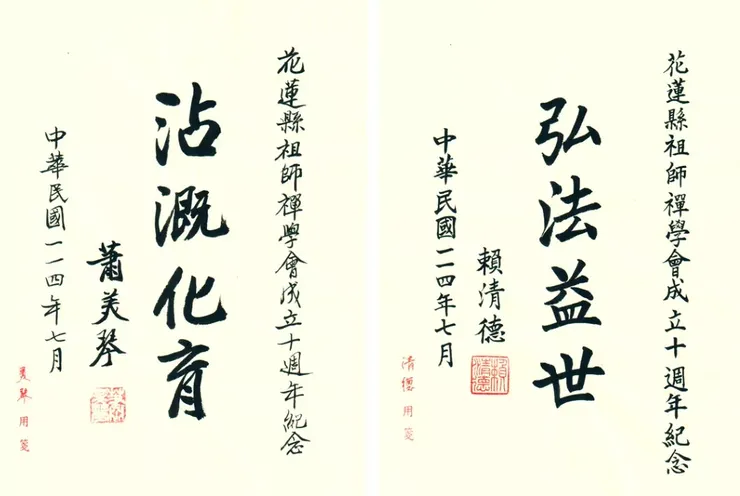 花蓮縣祖師禪學會成立十週年紀念
弘法益世
賴清德
賴清德
中華民國一一四年七月
清德用箋
花蓮縣祖師禪學會成立十週年紀念
沾溉化育
蕭美琴
中華民國一一四年七月
美琴用箋